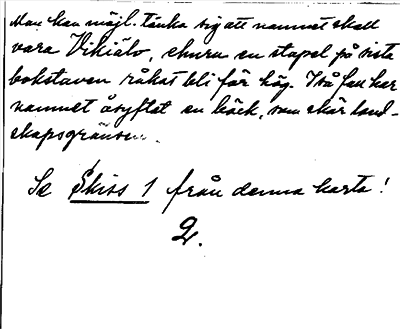 Man kan möjl. tänka sig att namnet skall
vara Vikiälv, ehuru en stapel på sista
bokstaven råkat bli för hög. I så fall har
namnet åsyftat en bäck, som skär land-
skapsgränsen.
Se Skiss 1 från denna karta!
2.